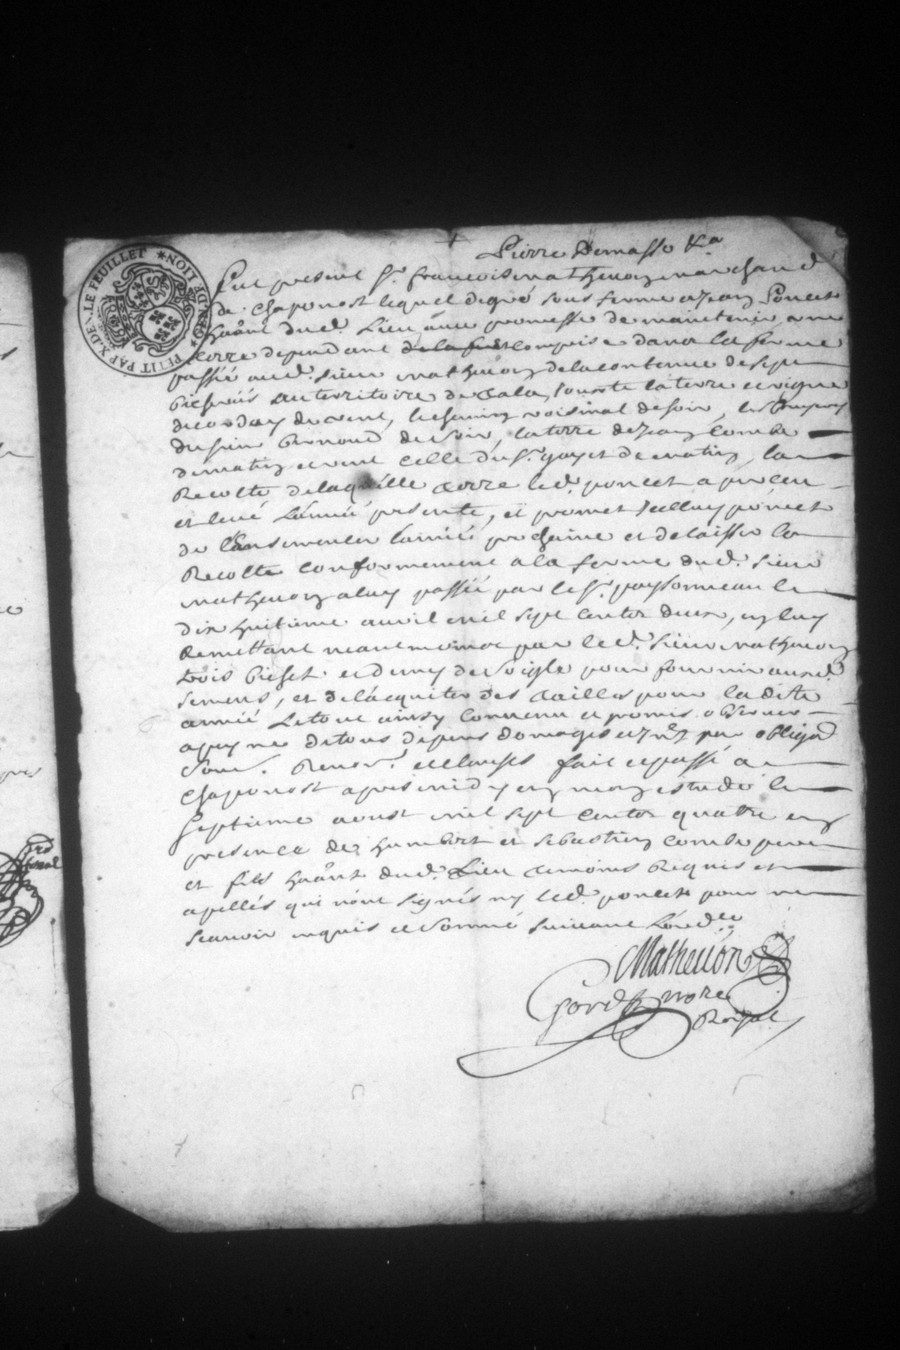 *NOITE DE GEN* PETIT PAP X.DE.. LE FEUILLET
Pierre Demasso
fut present Sr. francois mathevon marchand
de Chaponost lequel sous ferme a Jean Poncet
hãnt dud. Lieu avec promesse de maintenir une
terre dependant comprise dans la ferme
passée aud. Sieur mathevon de la contenue de sept
bicherés au territoire de la terre et vigne
de vent, le chemin voisinal de soir,
du sieur de soir, la terre de Jean Combe
de matin et vent celle du Sr. de matin, la
Recolte de laquelle terre led. poncet a
et levé Lannée presente, et promet Icelluy poncet
de l'Ensemencer lannée prochaine et delaisser la
Recolte conformement a la ferme dud. Sieur
mathevon a luy passée par le Sr. payssonneau le
dix huitieme avril mil sept centz deux, en luy
Remettant neantmoins par led. Sieur mathevon
trois bichet et demy de Soigle pour fournir aux d.
semens, et de lacquiter des tailles pour la dite
année Le tout ainsy convenu et promis observer
a peyne de tous depens domages et par obligãon
Soum. Renon. et clauses fait et passé a
Chaponost apres midy en mon estude le
septieme aoust mil sept centz quatre en
presence de humbert et sebastien combe pere
et fils hãnt dud. Lieu temoins Requis et
apellés qui n'ont signés ny led. poncet pour ne
scavoir enquis et sommé suivant L'ord.
Mathevon
nore
Royal